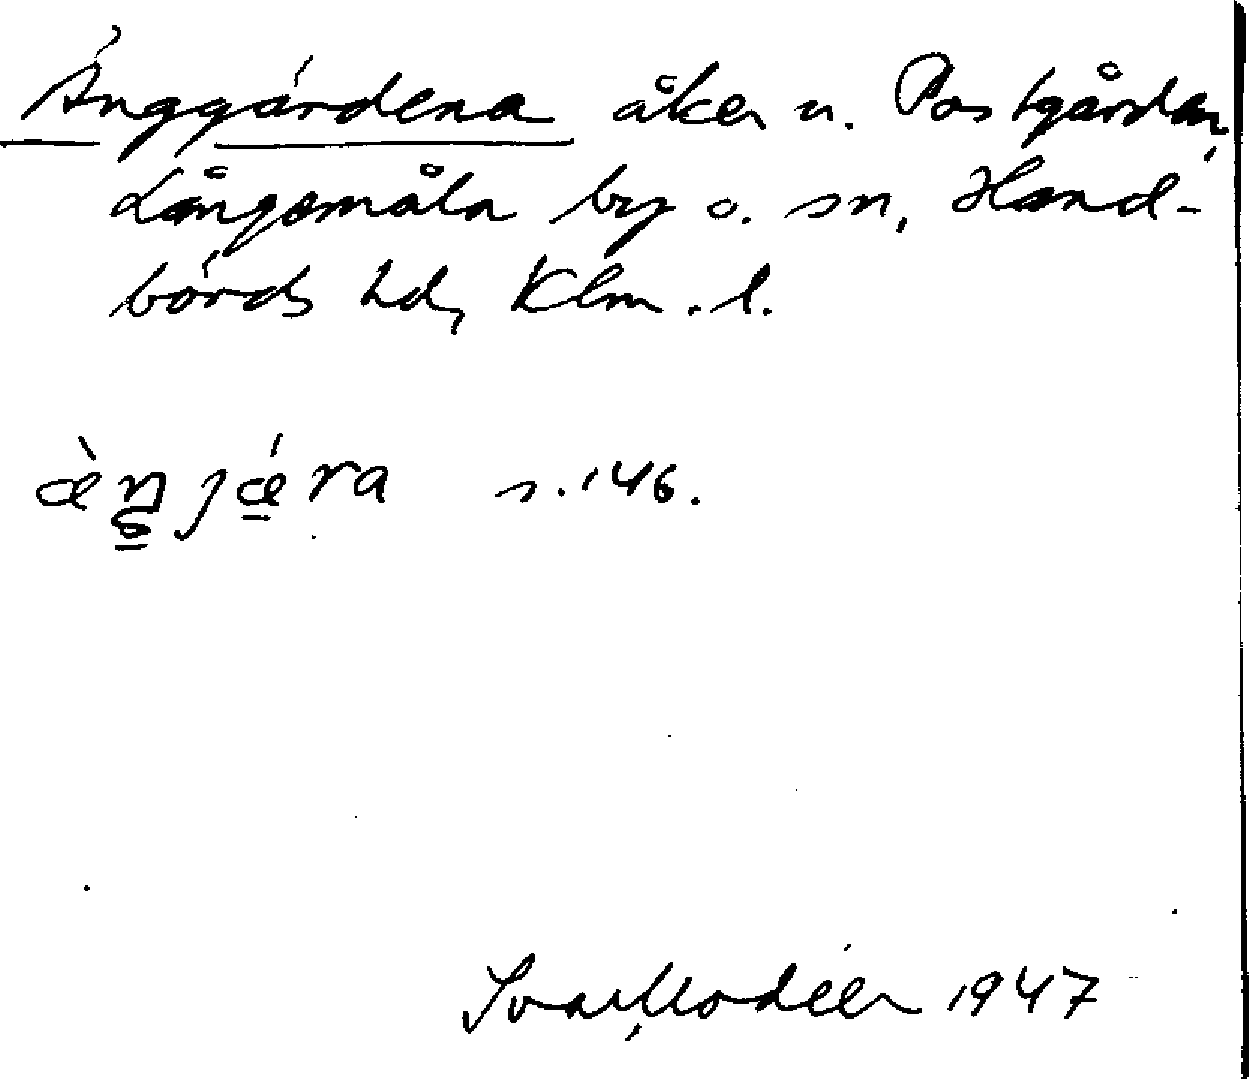 Änggärdena åker u. Postgården,
Långemåla by o. sn, Hand-
börds hd, Klm. l.
æ̀ŋjǽra s. 146.
Ivar Modéer 1947